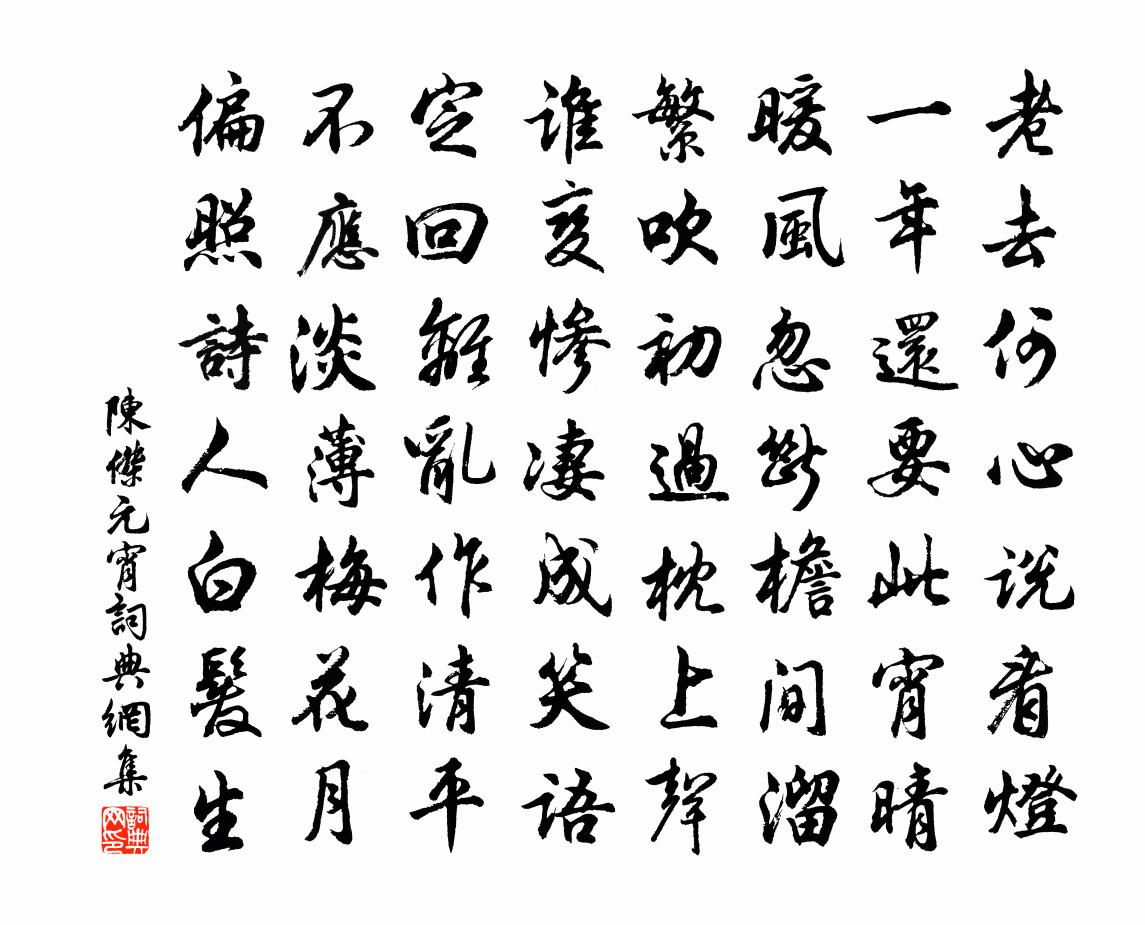 老去何心說看燈
一年還要此宵晴
暖風忽斷檐間溜
繁吹初過枕上聲
誰變慘凄成笑語
定回離亂作清平
不應淡薄梅花月
偏照詩人白髮生
陳傑元宵詞典網集
詞典网印